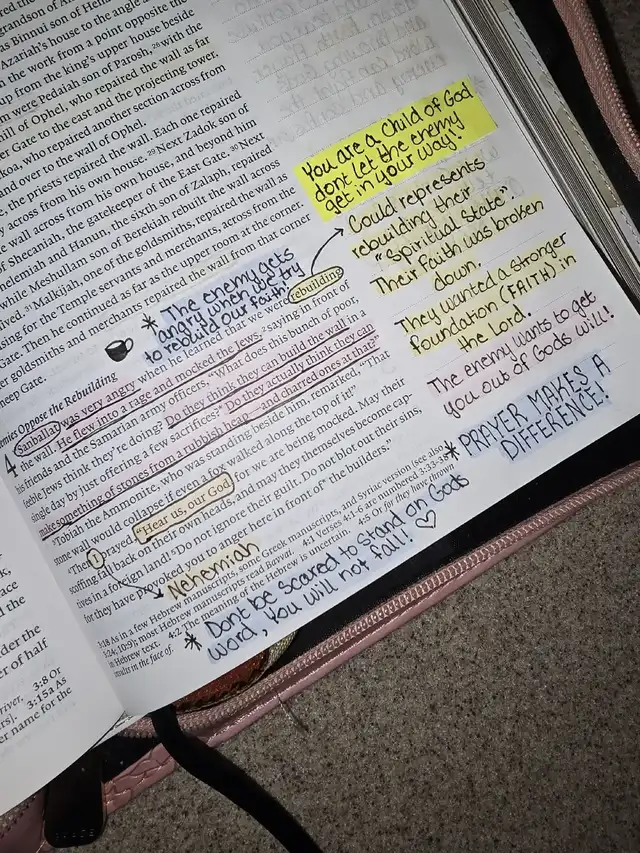 grandson of
as Binnui son of
Azariah's house to the angle and
the work from a point opposite the
up from the king's upper house beside
m were Pedaiah son of Parosh, 26 with the
hill of Ophel, who repaired the wall as far
er Gate to the east and the projecting tower.
koa, who repaired another section across from
and over to the wall of Ophel.
, the priests repaired the wall. Each one repaired
y across from his own house. 29 Next Zadok son of
e wall across from his own house, and beyond him
of Shecaniah, the gatekeeper of the East Gate. 30 Next
helemiah and Hanun, the sixth son of Zalaph, repaired
while Meshullam son of Berekiah rebuilt the wall across
lived. 31 Malkijah, one of the goldsmiths, repaired the wall as
using for the Temple servants and merchants, across from the
Gate. Then he continued as far as the upper room at the corner
er goldsmiths and merchants repaired the wall from that corner
heep Gate.
emies Oppose the Rebuilding
4 Sanballat was very angry when he learned that we were rebuilding
the wall. He flew into a rage and mocked the Jews, 2 saying in front of
his friends and the Samarian army officers, "What does this bunch of poor,
feeble Jews think they're doing? Do they think they can build the wall in a
single day by just offering a few sacrifices? Do they actually think they can
make something of stones from a rubbish heap—and charred ones at that?"
3 Tobiah the Ammonite, who was standing beside him, remarked, "That
stone wall would collapse if even a fox walked along the top of it!"
4 Then I prayed, "Hear us, our God, for we are being mocked. May their
scoffing fall back on their own heads, and may they themselves become cap-
tives in a foreign land! 5 Do not ignore their guilt. Do not blot out their sins,
for they have provoked you to anger here in front of the builders."
3:18 As in a few Hebrew manuscripts, some Greek manuscripts, and Syriac version (see also
3:24; 10:9); most Hebrew manuscripts read Bavvai. 4:1 Verses 4:1-6 are numbered 3:33-38
in Hebrew text. 4:2 The meaning of the Hebrew is uncertain. 4:5 Or for they have thrown
insults in the face of.
The enemy gets
angry when we try
to rebuild our faith
You are a child of God
dont let the enemy
get in your way!
Could represents
rebuilding their
"Spiritual State".
Their faith was broken
down.
They wanted a stronger
foundation (FAITH) in
the Lord.
The enemy wants to get
you out of Gods will!
PRAYER MAKES A
DIFFERENCE!
Nehemiah
Dont be scared to stand on Gods
word, You will not fall!
ace
d the
der the
er of half
river. 3:8 Or
rs]. 3:15a As
er name for the